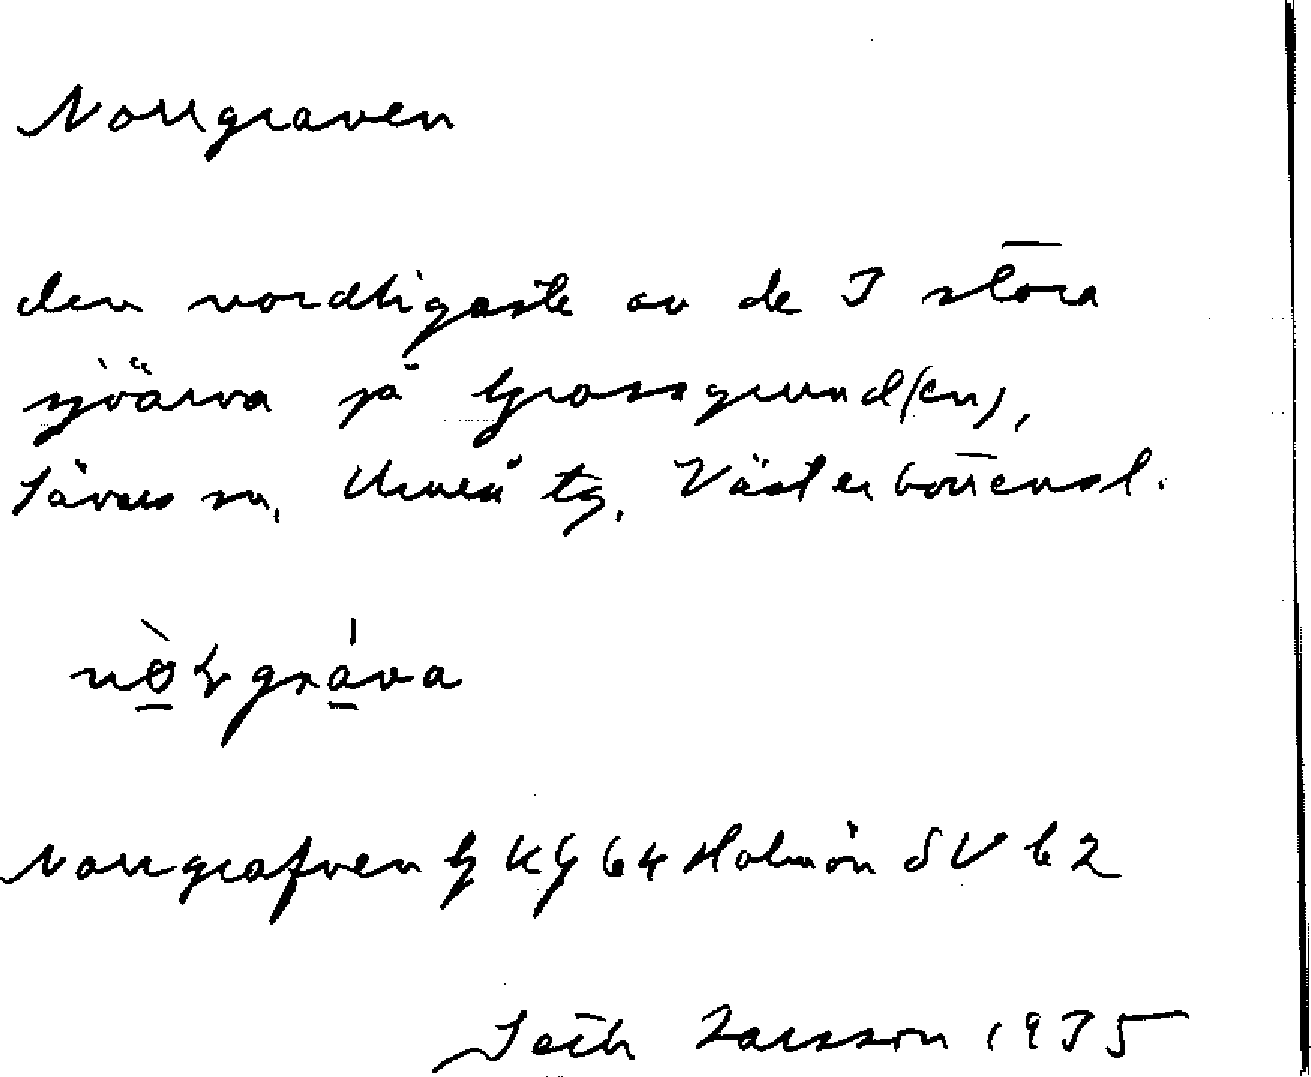 Norrgraven
den nordligaste av de 3 stora
sjöarna på Grossgrund(en),
Sävars sn, Umeå tg, Västerbottensl.
Norrgrafven GKG 64 Holmön SV b2
Seth Larsson 1935